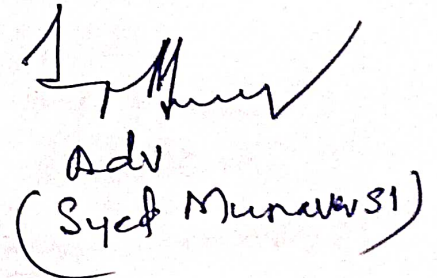 Adv
(Syed Munavar SI)